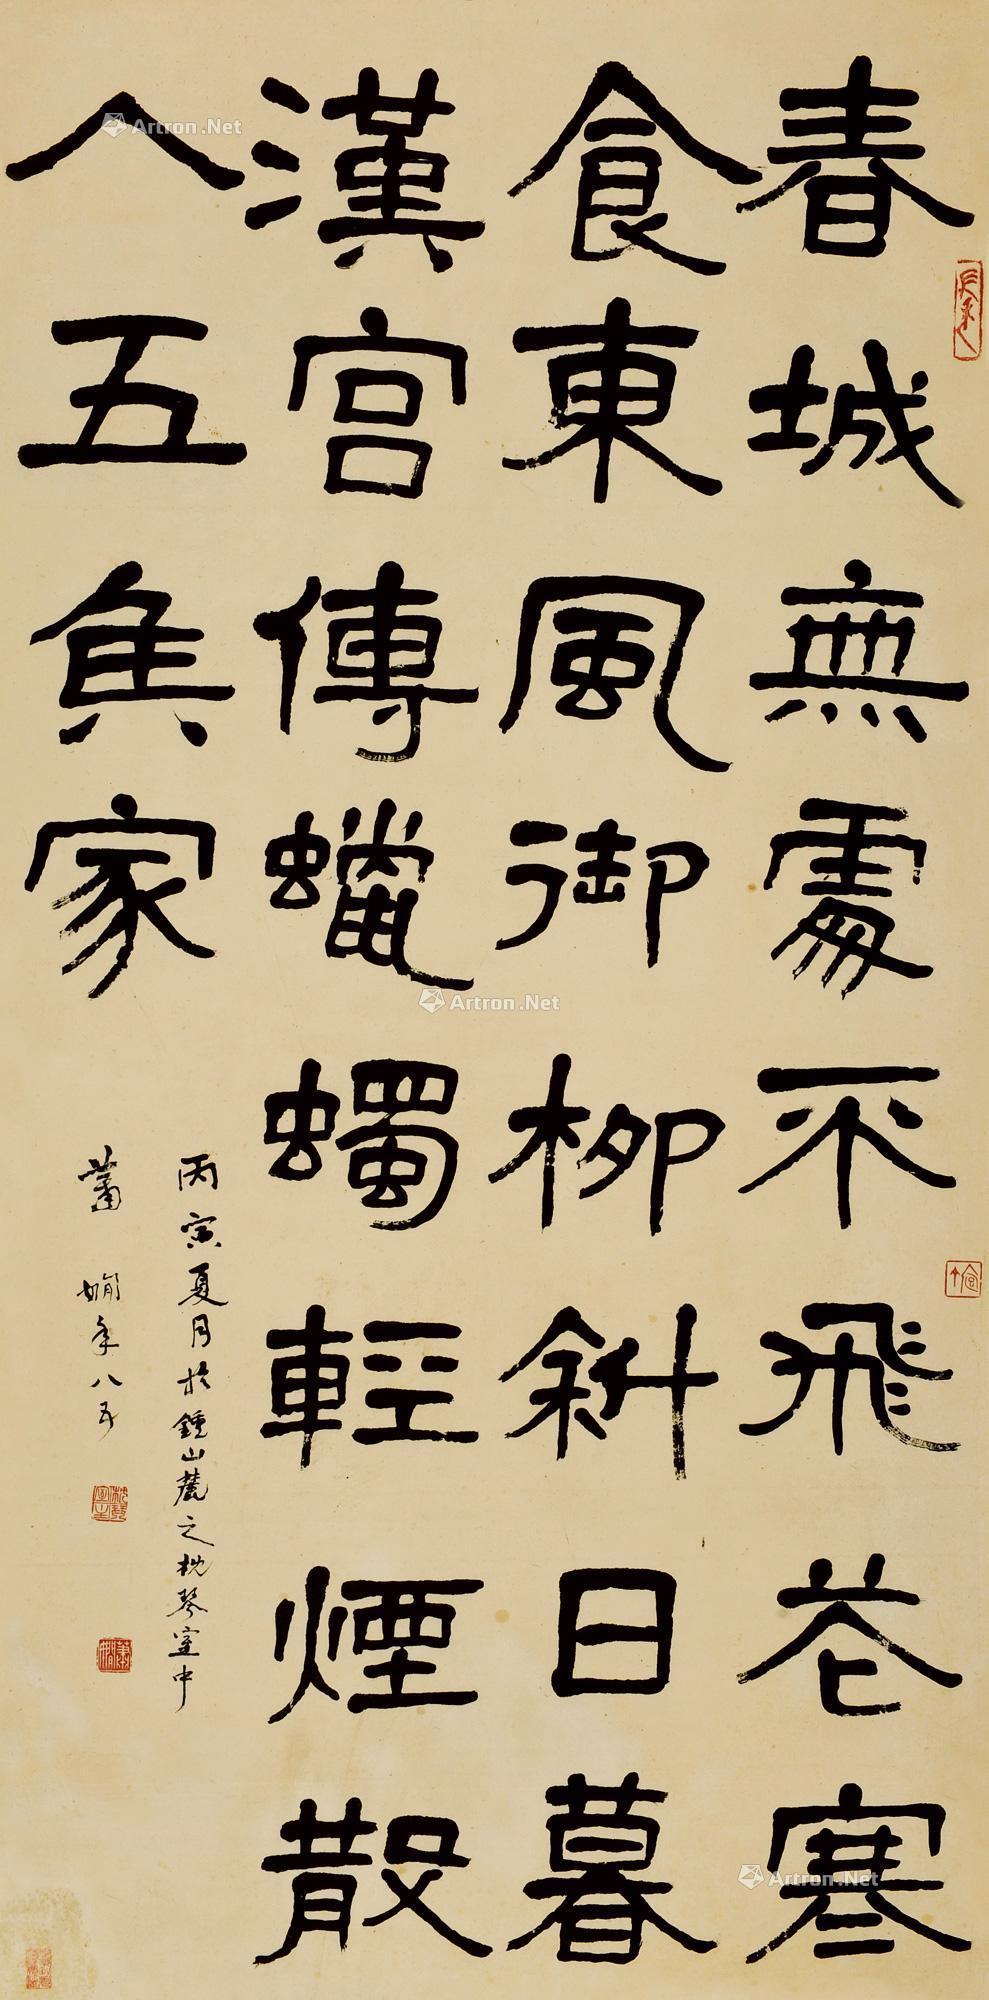 春城無處不飛花寒
食東風御柳斜日暮
漢宮傳蠟蠋輕煙散
入五矦家
丙寅夏月於鍾山麓之枕琴室中
蕭嫻年八五
Artron.Net
Artron.Net
Artron.Net